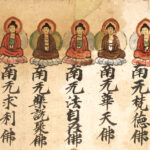 南无梵德佛
南无華天佛
南无法自在佛
南无樂説聚佛
南无求利佛